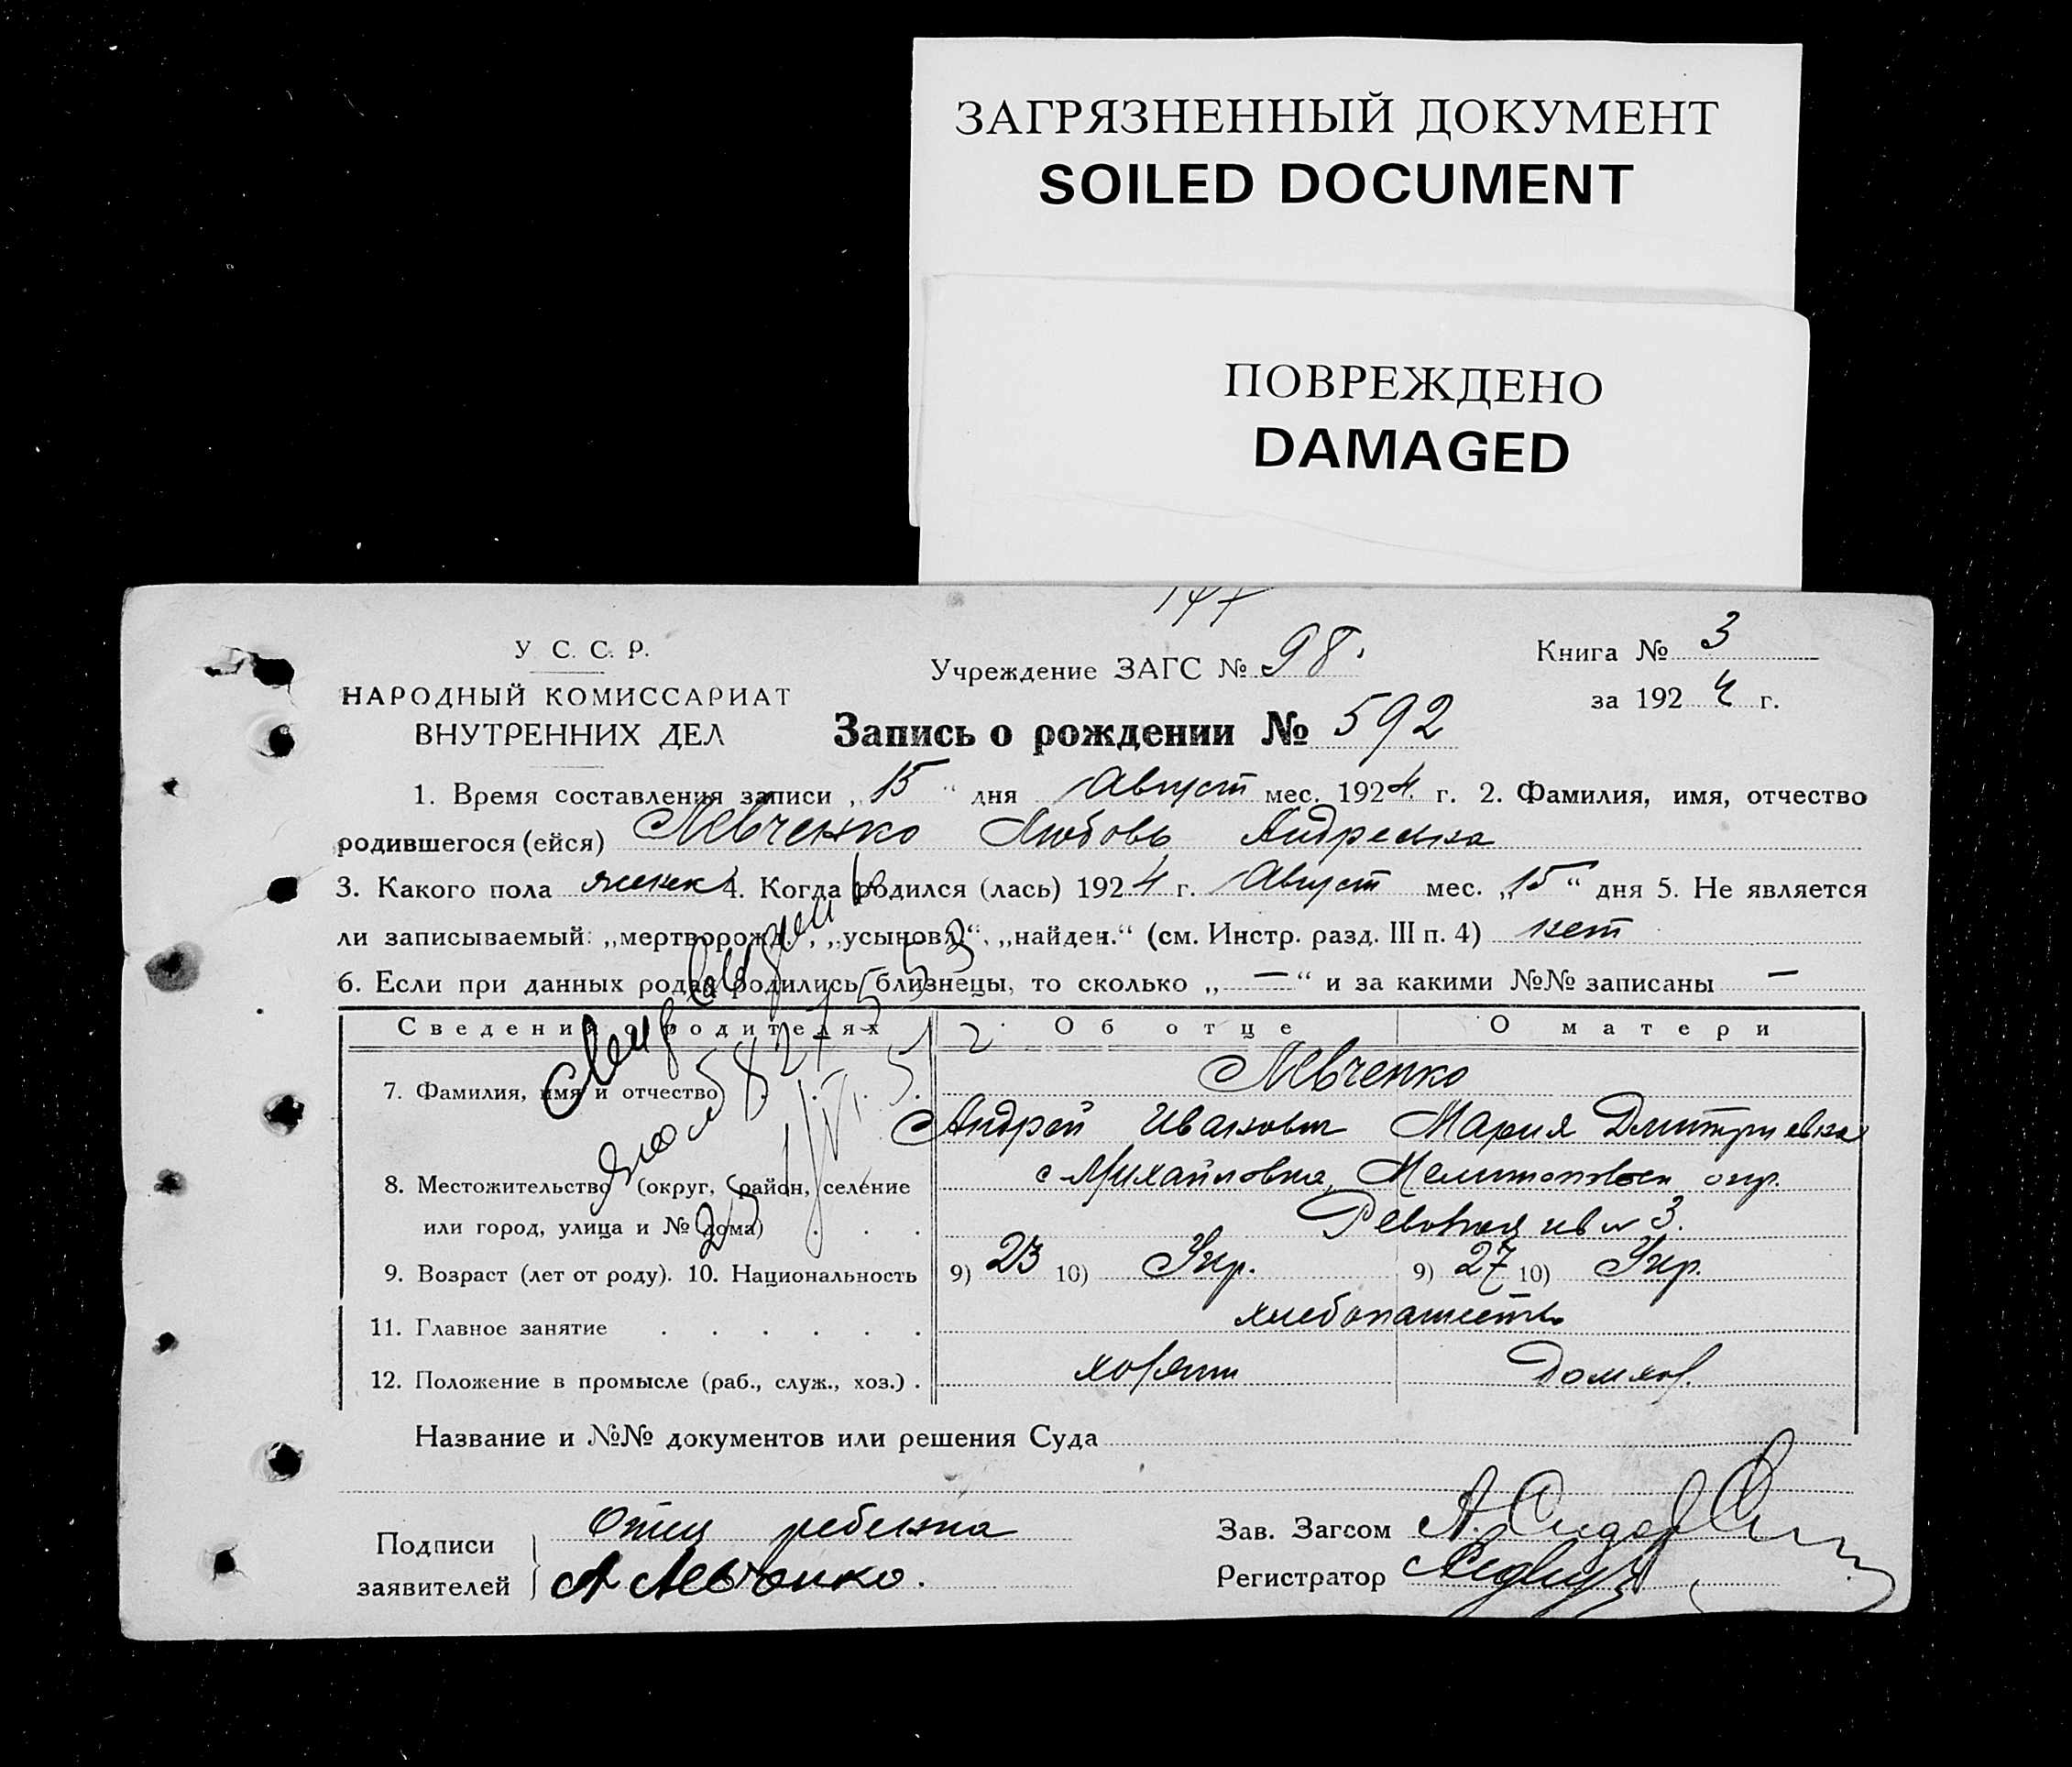 ЗАГРЯЗНЕННЫЙ ДОКУМЕНТ
SOILED DOCUMENT
ПОВРЕЖДЕНО
DAMAGED
У С. С. Р.
НАРОДНЫЙ КОМИССАРИАТ
ВНУТРЕННИХ ДЕЛ
Учреждение ЗАГС № 98.
Книга № 3
за 1924 г.
Запись о рождении № 592
1. Время составления записи „15“ дня Август мес. 1924 г. 2. Фамилия, имя, отчество
родившегося (ейся) Левченко Любовь Андреевна
3. Какого пола женск 4. Когда родился (лась) 1924 г. Август мес. „15“ дня 5. Не является
ли записываемый: „мертворожд.“, „усыновл.“, „найден.“ (см. Инстр. разд. III п. 4) нет
6. Если при данных родах родились близнецы, то сколько „—“ и за какими №№ записаны —
Сведения о родителях Об отце О матери
7. Фамилия, имя и отчество Левченко
Андрей Иванович Мария Дмитриевна
8. Местожительство (округ, район, селение с Михайловка, Мелитопольск окр.
или город, улица и № дома) 3.
9. Возраст (лет от роду). 10. Национальность 9) 23 10) Укр. 9) 27 10) Укр.
11. Главное занятие хлебопашеств
12. Положение в промысле (раб., служ., хоз.) хозяин Домхоз.
Название и №№ документов или решения Суда
Подписи
заявителей
Отец ребенка
А Левченко.
Зав. Загсом
Регистратор